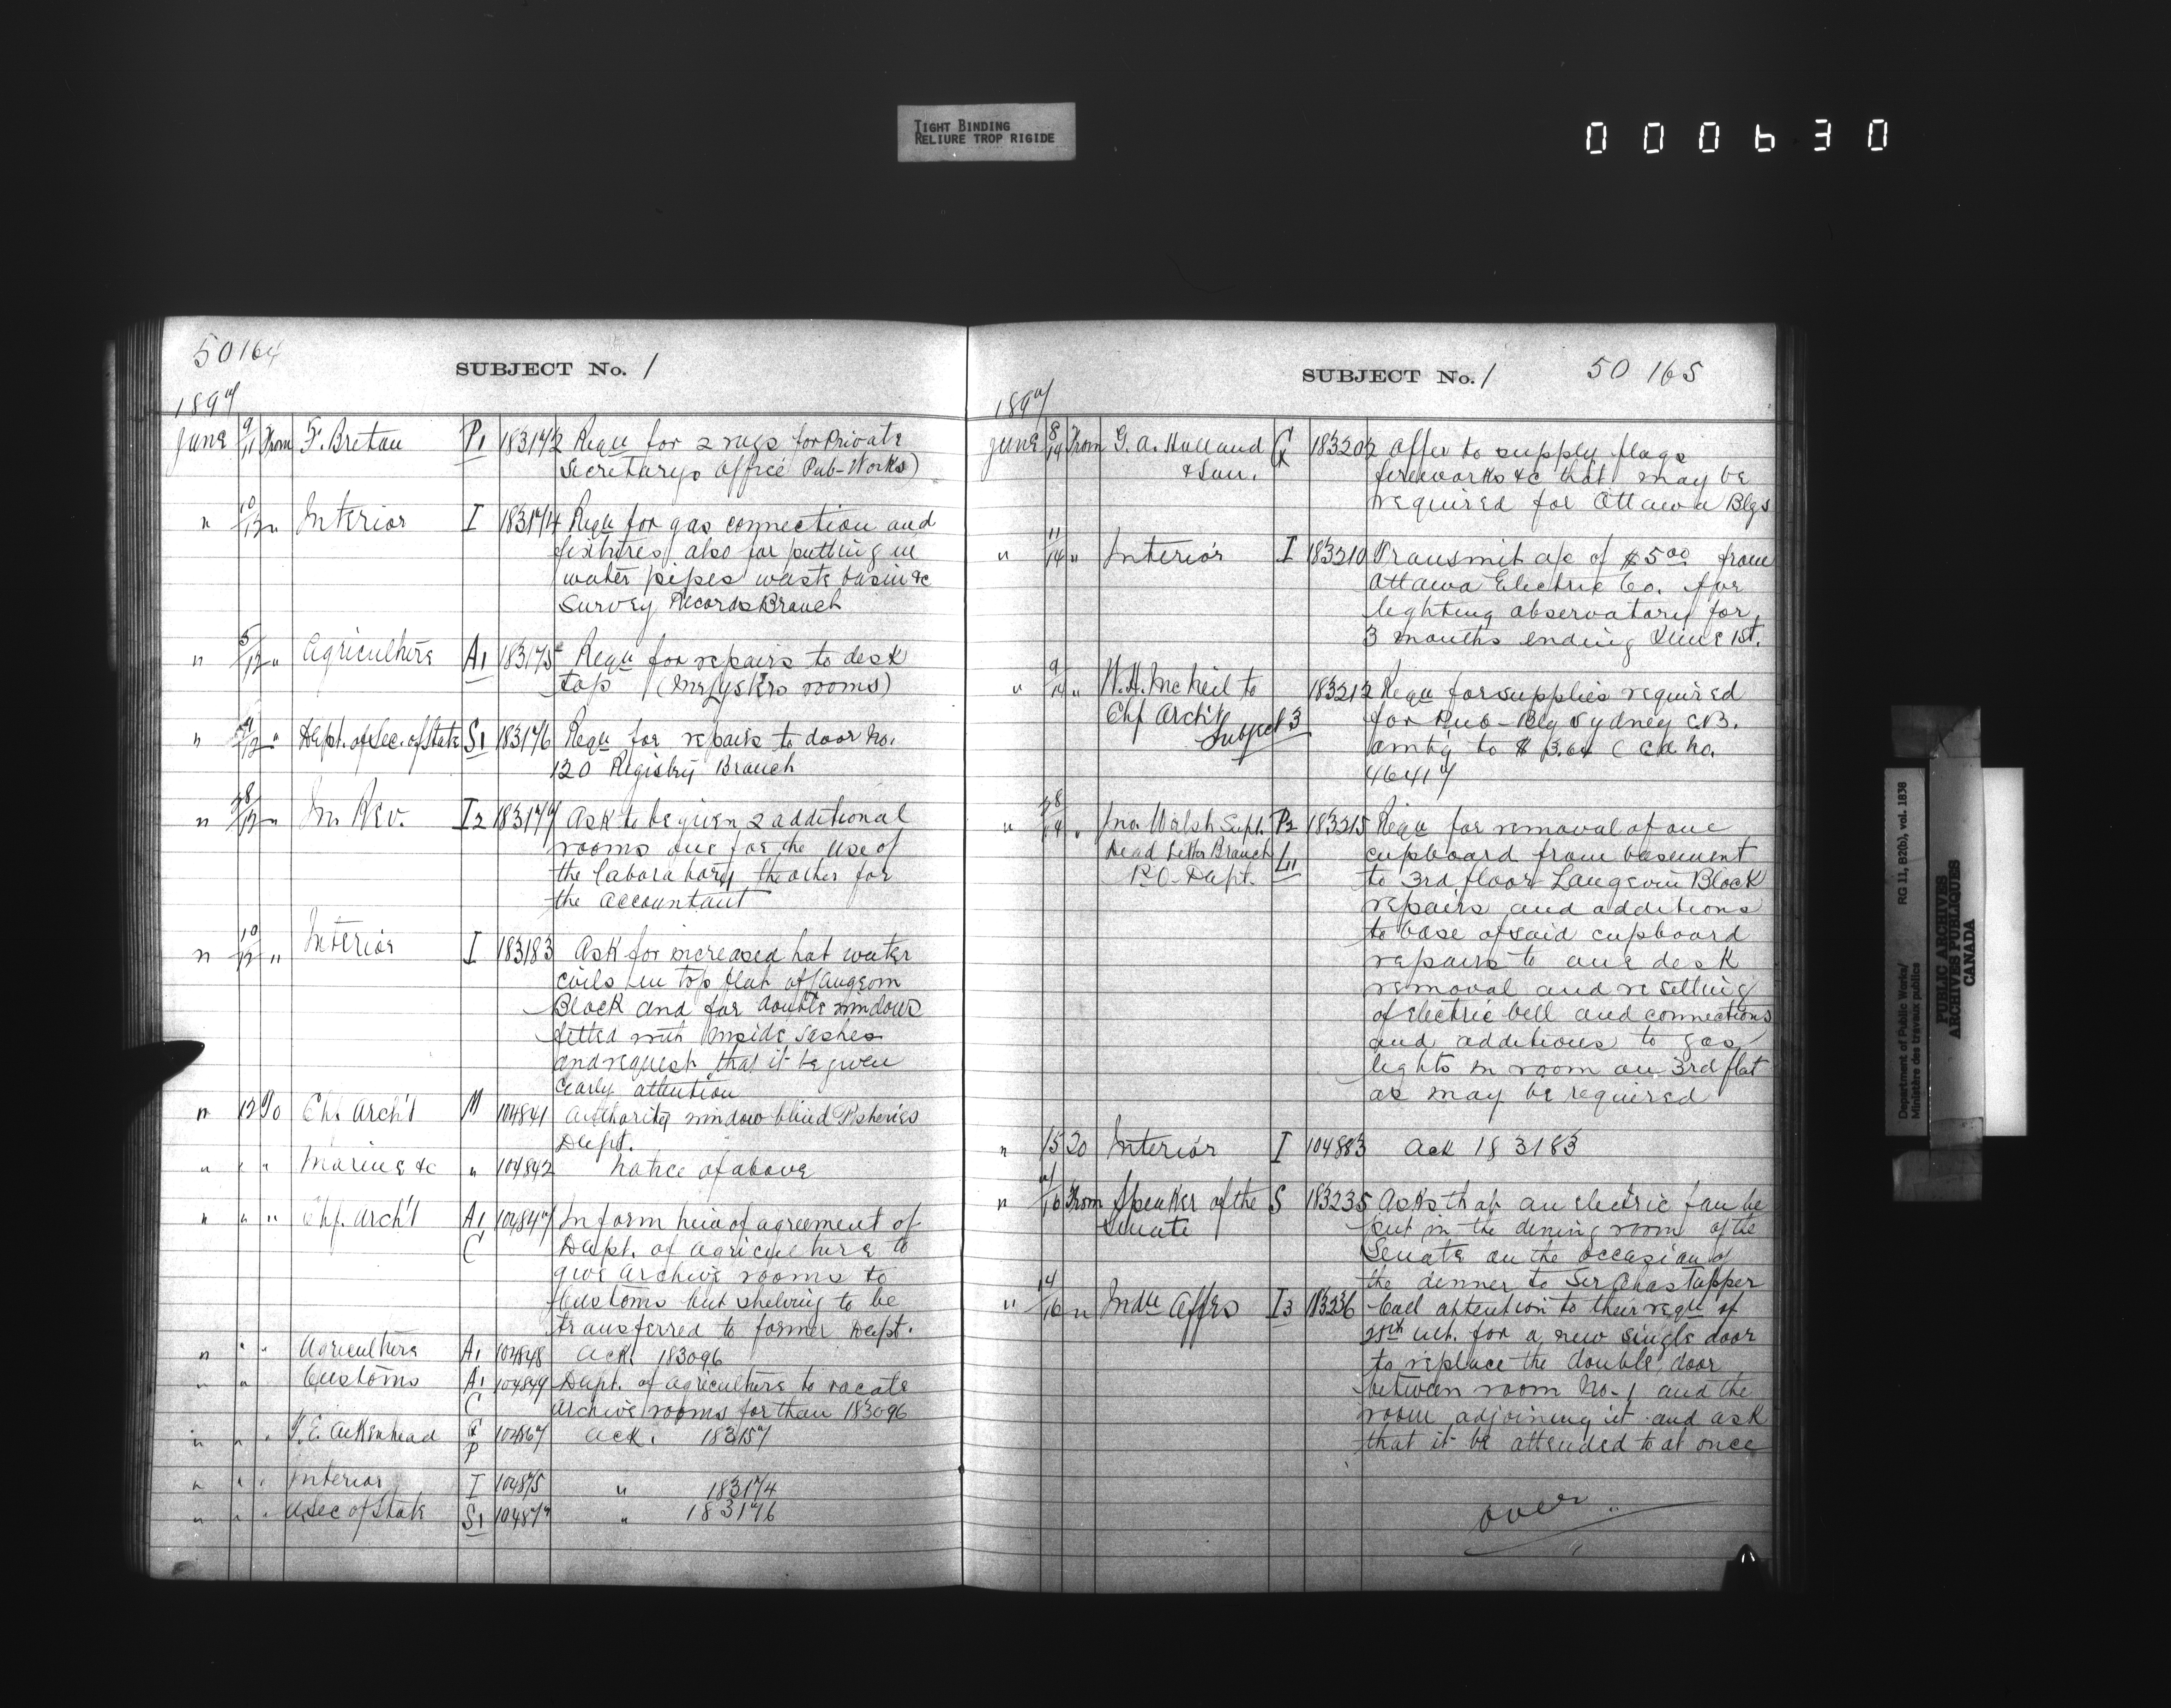 TIGHT BINDING
RELIURE TROP RIGIDE
000630
50164
SUBJECT No. 1
1897
June 9/11 From F. Bretau P1 183172 Requ for 2 rugs for Private
Secretarys Office Pub-Works)
" 10/12 " Interior I 183174 Requ for gas connection and
fixtures also for putting in
water pipes waste basin &c
Survey Records Branch
" 5/12 " Agriculture A1 183175 Requ for repairs to desk
top rooms)
" /12 " Dept. of Sec. of State S1 183176 Requ for repairs to door No.
120 Registry Branch
" 28/12 " In. Rev. I2 183179 Ask to be given 2 additional
rooms one for the use of
the laboratory the other for
the accountant
" 10/12 " Interior I 183183 Ask for increased hot water
coils in top flat of Langevin
Block and for double windows
fitted with inside sashes
and request that it be given
early attention
" 12 To Chf Arch't M 104841 Authority window blind Fisheries
Dept.
" " " Marine &c " 104842 Notice of above
" " " Chf. Arch't A1 104847 Inform him of agreement of
C Dept. of Agriculture to
give archive rooms to
Customs but shelving to be
transferred to former Dept.
" " " Agriculture A1 104848 Ack. 183096
" " Customs A1 104849 Dept. of Agriculture to vacate
C archive rooms for than 183096
" " " T. E. Aikenhead P 104867 Ack. 183157
" " " Interior I 104875 " 183174
" " " U. Sec of State S1 104877 " 183176
SUBJECT No. 1 50 165
1897
June 8/14 From G. A. Holland 183202 Offer to supply flags
& Son. fireworks &c that may be
required for Ottawa Blgs
" 11/14 " Interior I 183210 Transmit a/c of $5.00 from
Ottawa Electric Co. for
lighting observatory for
3 months ending June 1st.
" 9/14 " W. H. McNeil to 183212 Requ for supplies required
Chf Arch't Subject 3 for Pub-Blg Sydney C.B.
amtg to $ 3.64 ( Ck No.
46417
" 28/14 " Jno. Walsh Supt. P2 183215 Requ for removal of one
Dead Letter Branch L1 cupboard from basement
P.O. Dept. to 3rd floor Langevin Block
repairs and additions
to base of said cupboard
repairs to one desk
removal and resetting
of electric bell and connections
and additions to gas
lights in room on 3rd flat
as may be required
" 15 To Interior I 104883 Ack 183183
" /16 From Speaker of the S 183235 Asks that an electric fan be
Senate put in the dining room of the
Senate on the occasion of
the dinner to Sir Chas Tupper
" 14/16 " Indn Affrs I3 183236 Call attention to their requ of
25th ult. for a new single door
to replace the double door
between room No. 1 and the
room adjoining it and ask
that it be attended to at once
over
Department of Public Works/ RG 11, B2(b), vol. 1838
Ministère des travaux publics
PUBLIC ARCHIVES
ARCHIVES PUBLIQUES
CANADA